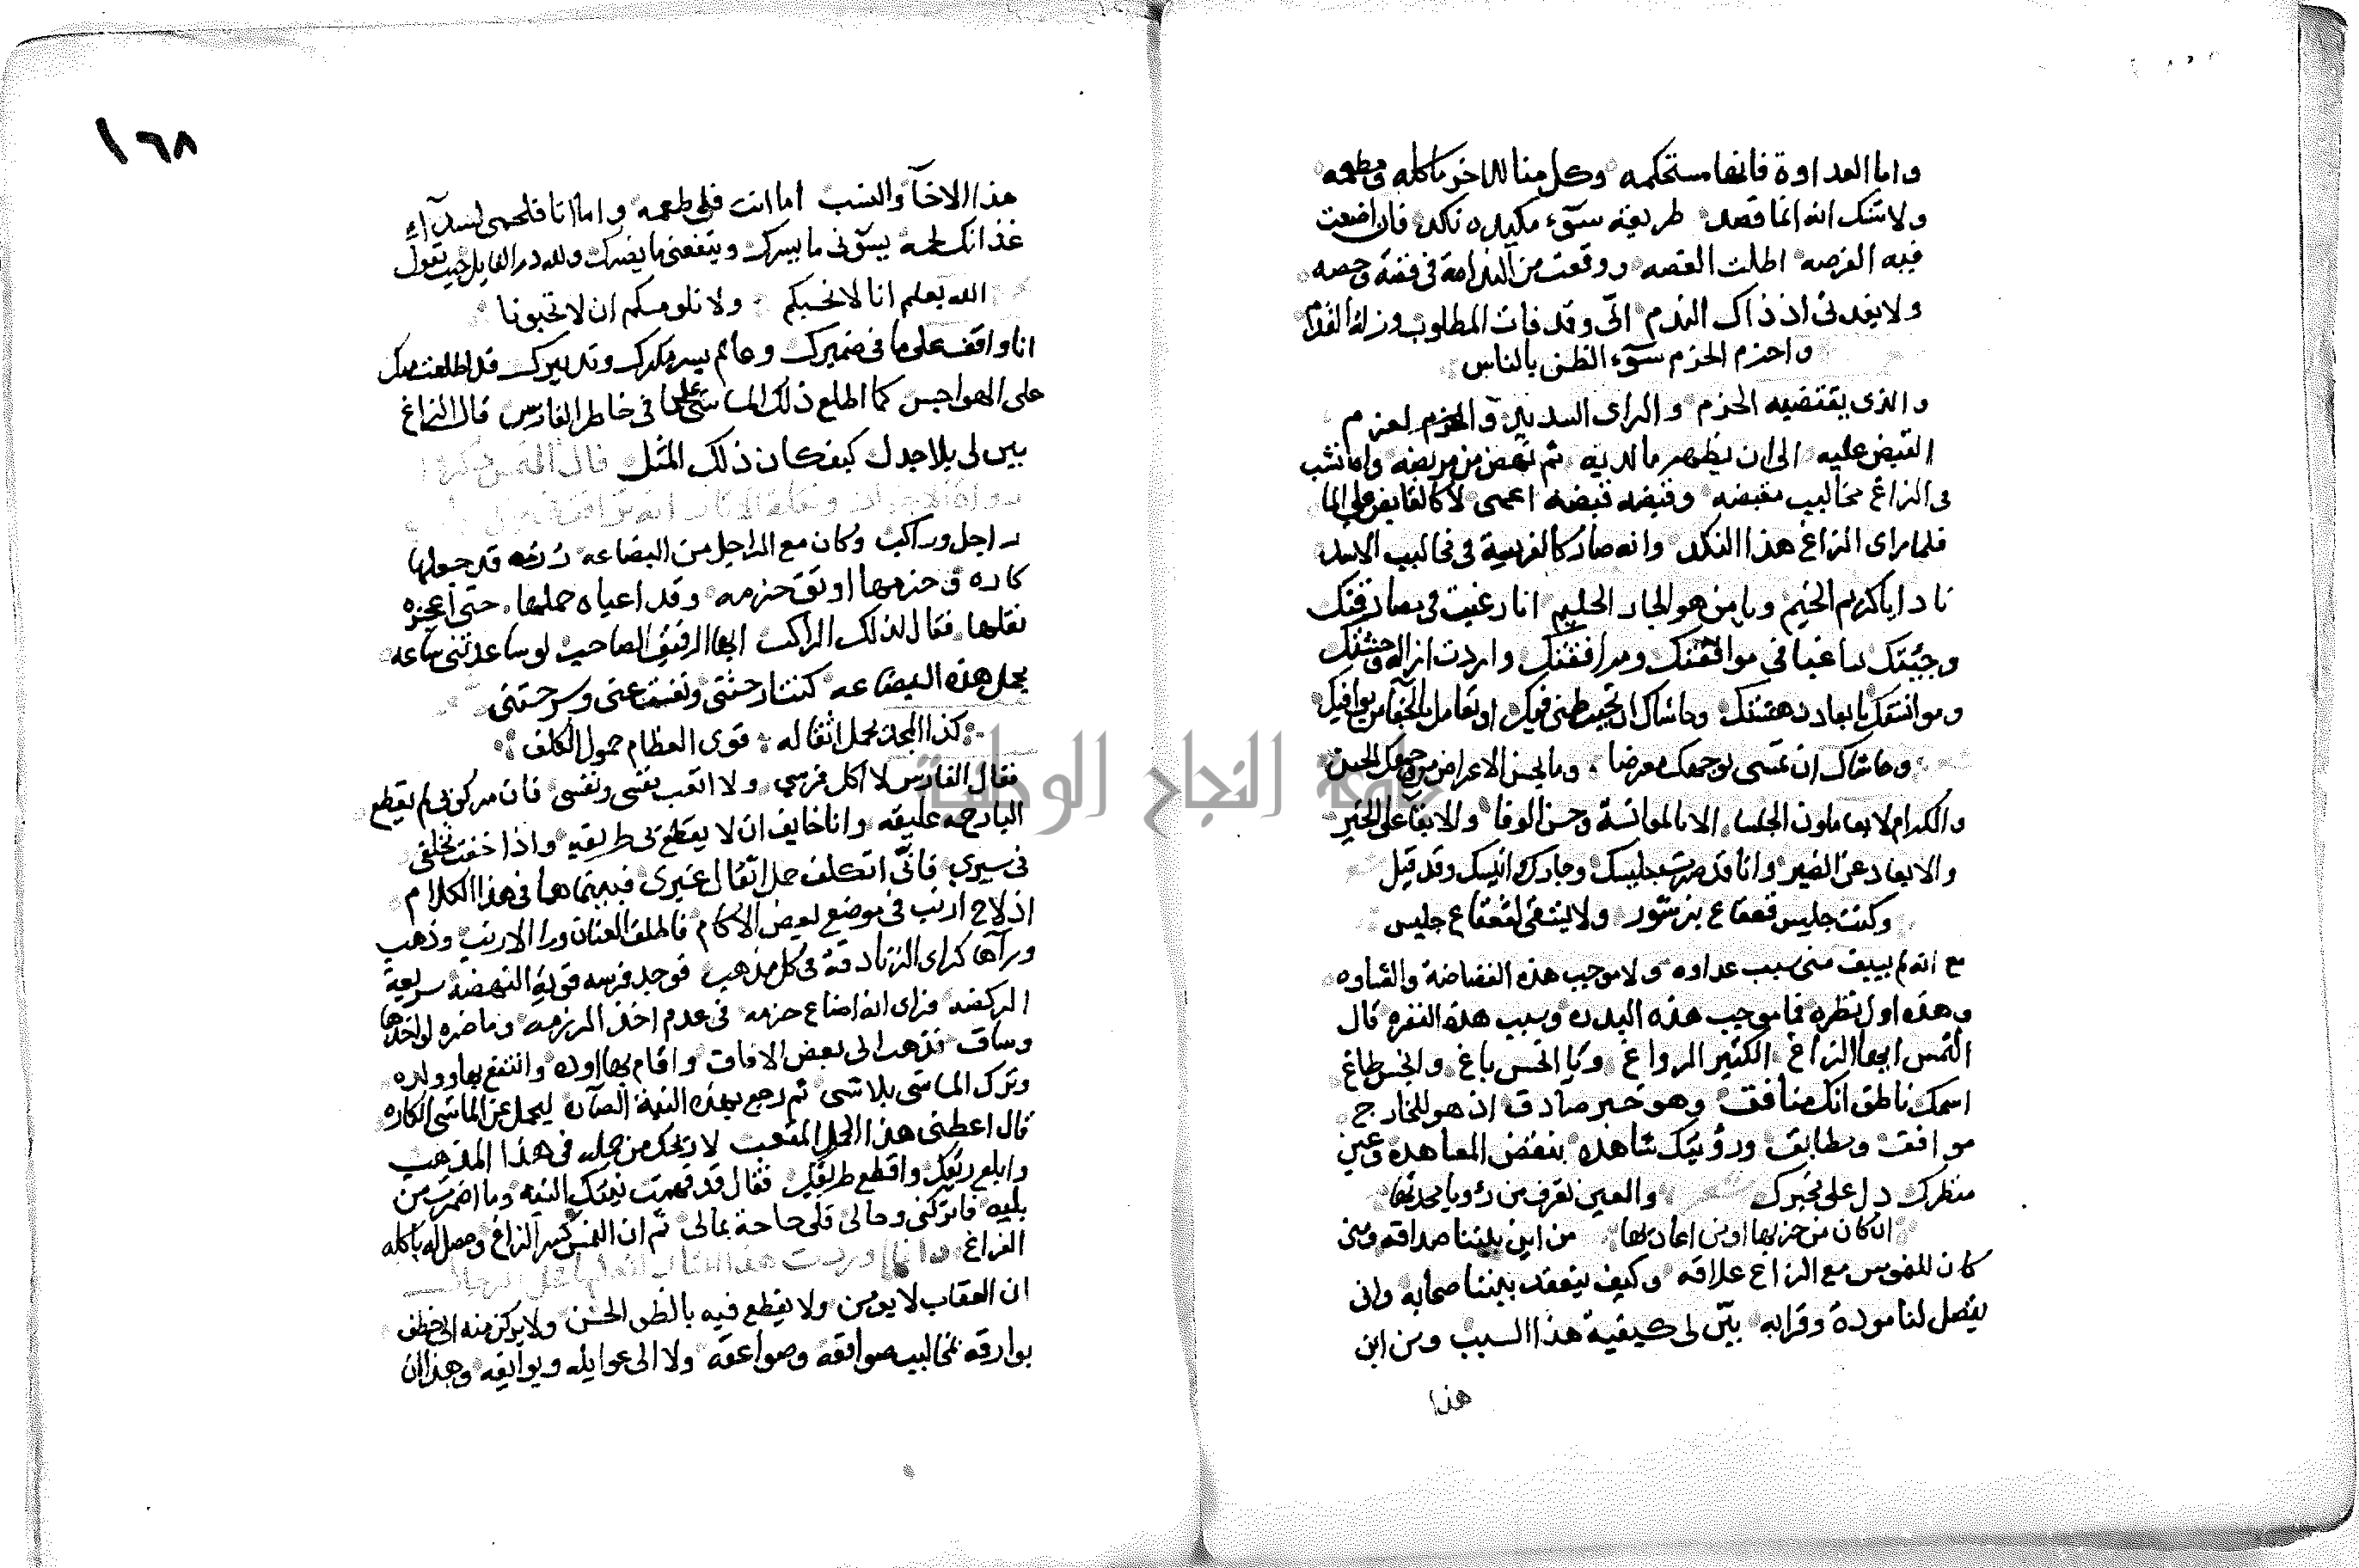 واما العداوة فانها مستحكمه وكل منا للاخر ماكله ومطعمه
ولا شك انه انما قصد طريقه سوء مكيده نكد فان اضعت
فيه الفرصه اطلت الغصه ووقعت من الندامة في قصة وحصه
ولا يفدني اذ ذاك الندم الى وقد فات المطلوب وزلة القدم
واحزم الحزم سوء الظن بالناس
والذي يقتضيه الحزم والراى السديد والحزم لعزم
القبض عليه الى ان يظهر ما لديه ثم نهض من مربضه وانشب
في الزاغ مخاليب مقبضه وقبضه قبضه اعمى لا كالقابض على الما
فلما راى الزاغ هذا النكد وانه صار كالفريسة في مخاليب الاسد
نادا يا كريم الخيم ويا من هو الجار الحليم انا رغبت في مصادقتك
وجئتك راغبا في موافقتك ومرافقتك واردت ازالة وحشتك
وموانستك بابعاد دهشتك وحاشاك ان تخيب ظني فيك او تعامل بالجفا من يوافيك
وحاشاك ان تمسى بوجهك معرضا وما يحسن الاعراض من وجهك الحسن
والكرام لا يعاملون الجلسا الا بالموانسة وحسن الوفا والابقا على الخير
والابعاد عن الضير وانا قد صرت جليسك وجارك وانيسك وقد قيل
وكنت جليس قعقاع بن شور ولا يشقى لقعقاع جليس
مع انه لم يسبق منى سبب عداوه ولا موجب هذه الفضاضة والقساوه
وهذه اول نظره فما موجب هذه البدره وسبب هذه النفره قال
النمس ايها الزاغ الكثير الرواغ ويا انحس باغ والخس طاغ
اسمك ناطق انك منافق وهو خبر صادق اذ هو للخارج
موافق ومطابق ورؤيتك شاهده بنقض المعاهده وعين
منظرك دل على مخبرك شعر والعين تعرف من رؤيا محدثها
ان كان من حزبها او من اعاديها من اين بيننا صداقه ومتى
كان للنموس مع الزاغ علاقه وكيف ينعقد بيننا صحابه وانى
يتصل لنا مودة وقرابه بين لى كيفية هذا السبب ومن اين
هذا
١٦٨
هذا الاخآ والنسب اما انت فلى طعمه واما انا فلحمى لسد
غذائك لحمه يسؤنى ما يسرك وينفعنى ما يضرك ولله در القايل حيث تقول
الله يعلم انا لا نحبكم ولا نلومكم ان لا تحبونا
انا واقف على ما في ضميرك وعالم بسر مكرك وتدبيرك قد اطلعت منك
على الهواجس كما اطلع ذلك الماشى على ما في خاطر الفارس قال الزاغ
بين لى بلا جدل كيف كان ذلك المثل قال النمس
راجل وراكب وكان مع الراجل من البضاعه رزمه قد جعلها
كاره في حزمها اوثق حزمه وقد اعياه حملها حتى اعجزه
نقلها فقال لذلك الراكب ايها الرفيق الصاحب لو ساعدتنى ساعه
بحمل هذه البضاعه كنت ارحتنى ونفست عنى وسرحتنى
كذا المجد يحمل اثقاله قوى العظام حمول الكلف
فقال الفارس لا اكل فرسي ولا اتعب نفسى ونفسى فان مركوبى لم يقطع
البارحه عليقه وانا خايف ان لا يقطع بى طريقه واذا خفت تخلفى
في سيري فانى اتكلف حمل اثقال غيرى فبينما هما في هذا الكلام
اذ لاح ارنب في موضع بعض الاكام فاطلق العنان ورا الارنب وذهب
ورآها كراى الزنادقة في كل مذهب فوجد فرسه قوية النهضة سريعة
الركضه فراى انه اضاع حزمه في عدم اخذ الرزمه وما ضره لو اخذها
وساق فذهب الى بعض الافاق واقام بها اوده وانتفع بها وولده
وترك الماشى بلا شى ثم رجع بهذه النية الصآره ليحمل عن الماشى الكاره
قال اعطنى هذا الحمل المتعب لا ريحك من حمله في هذا المذهب
وابلع ريقك واقطع طريقك فقال قد فهمت نيتك النيه وما اضمرت من
بليه فاتركنى وحالى فلى حاجة بمالى ثم ان النمس كسر الزاغ وحصل له باكله
الفراغ وانما اوردت هذا
ان العقاب لا يومن ولا يقطع فيه بالظن الحسن ولا يركن منه الى خطف
بوارقه مخاليب صوافقه وصواعقه ولا الى غوايله وبوايقه وهذا ان